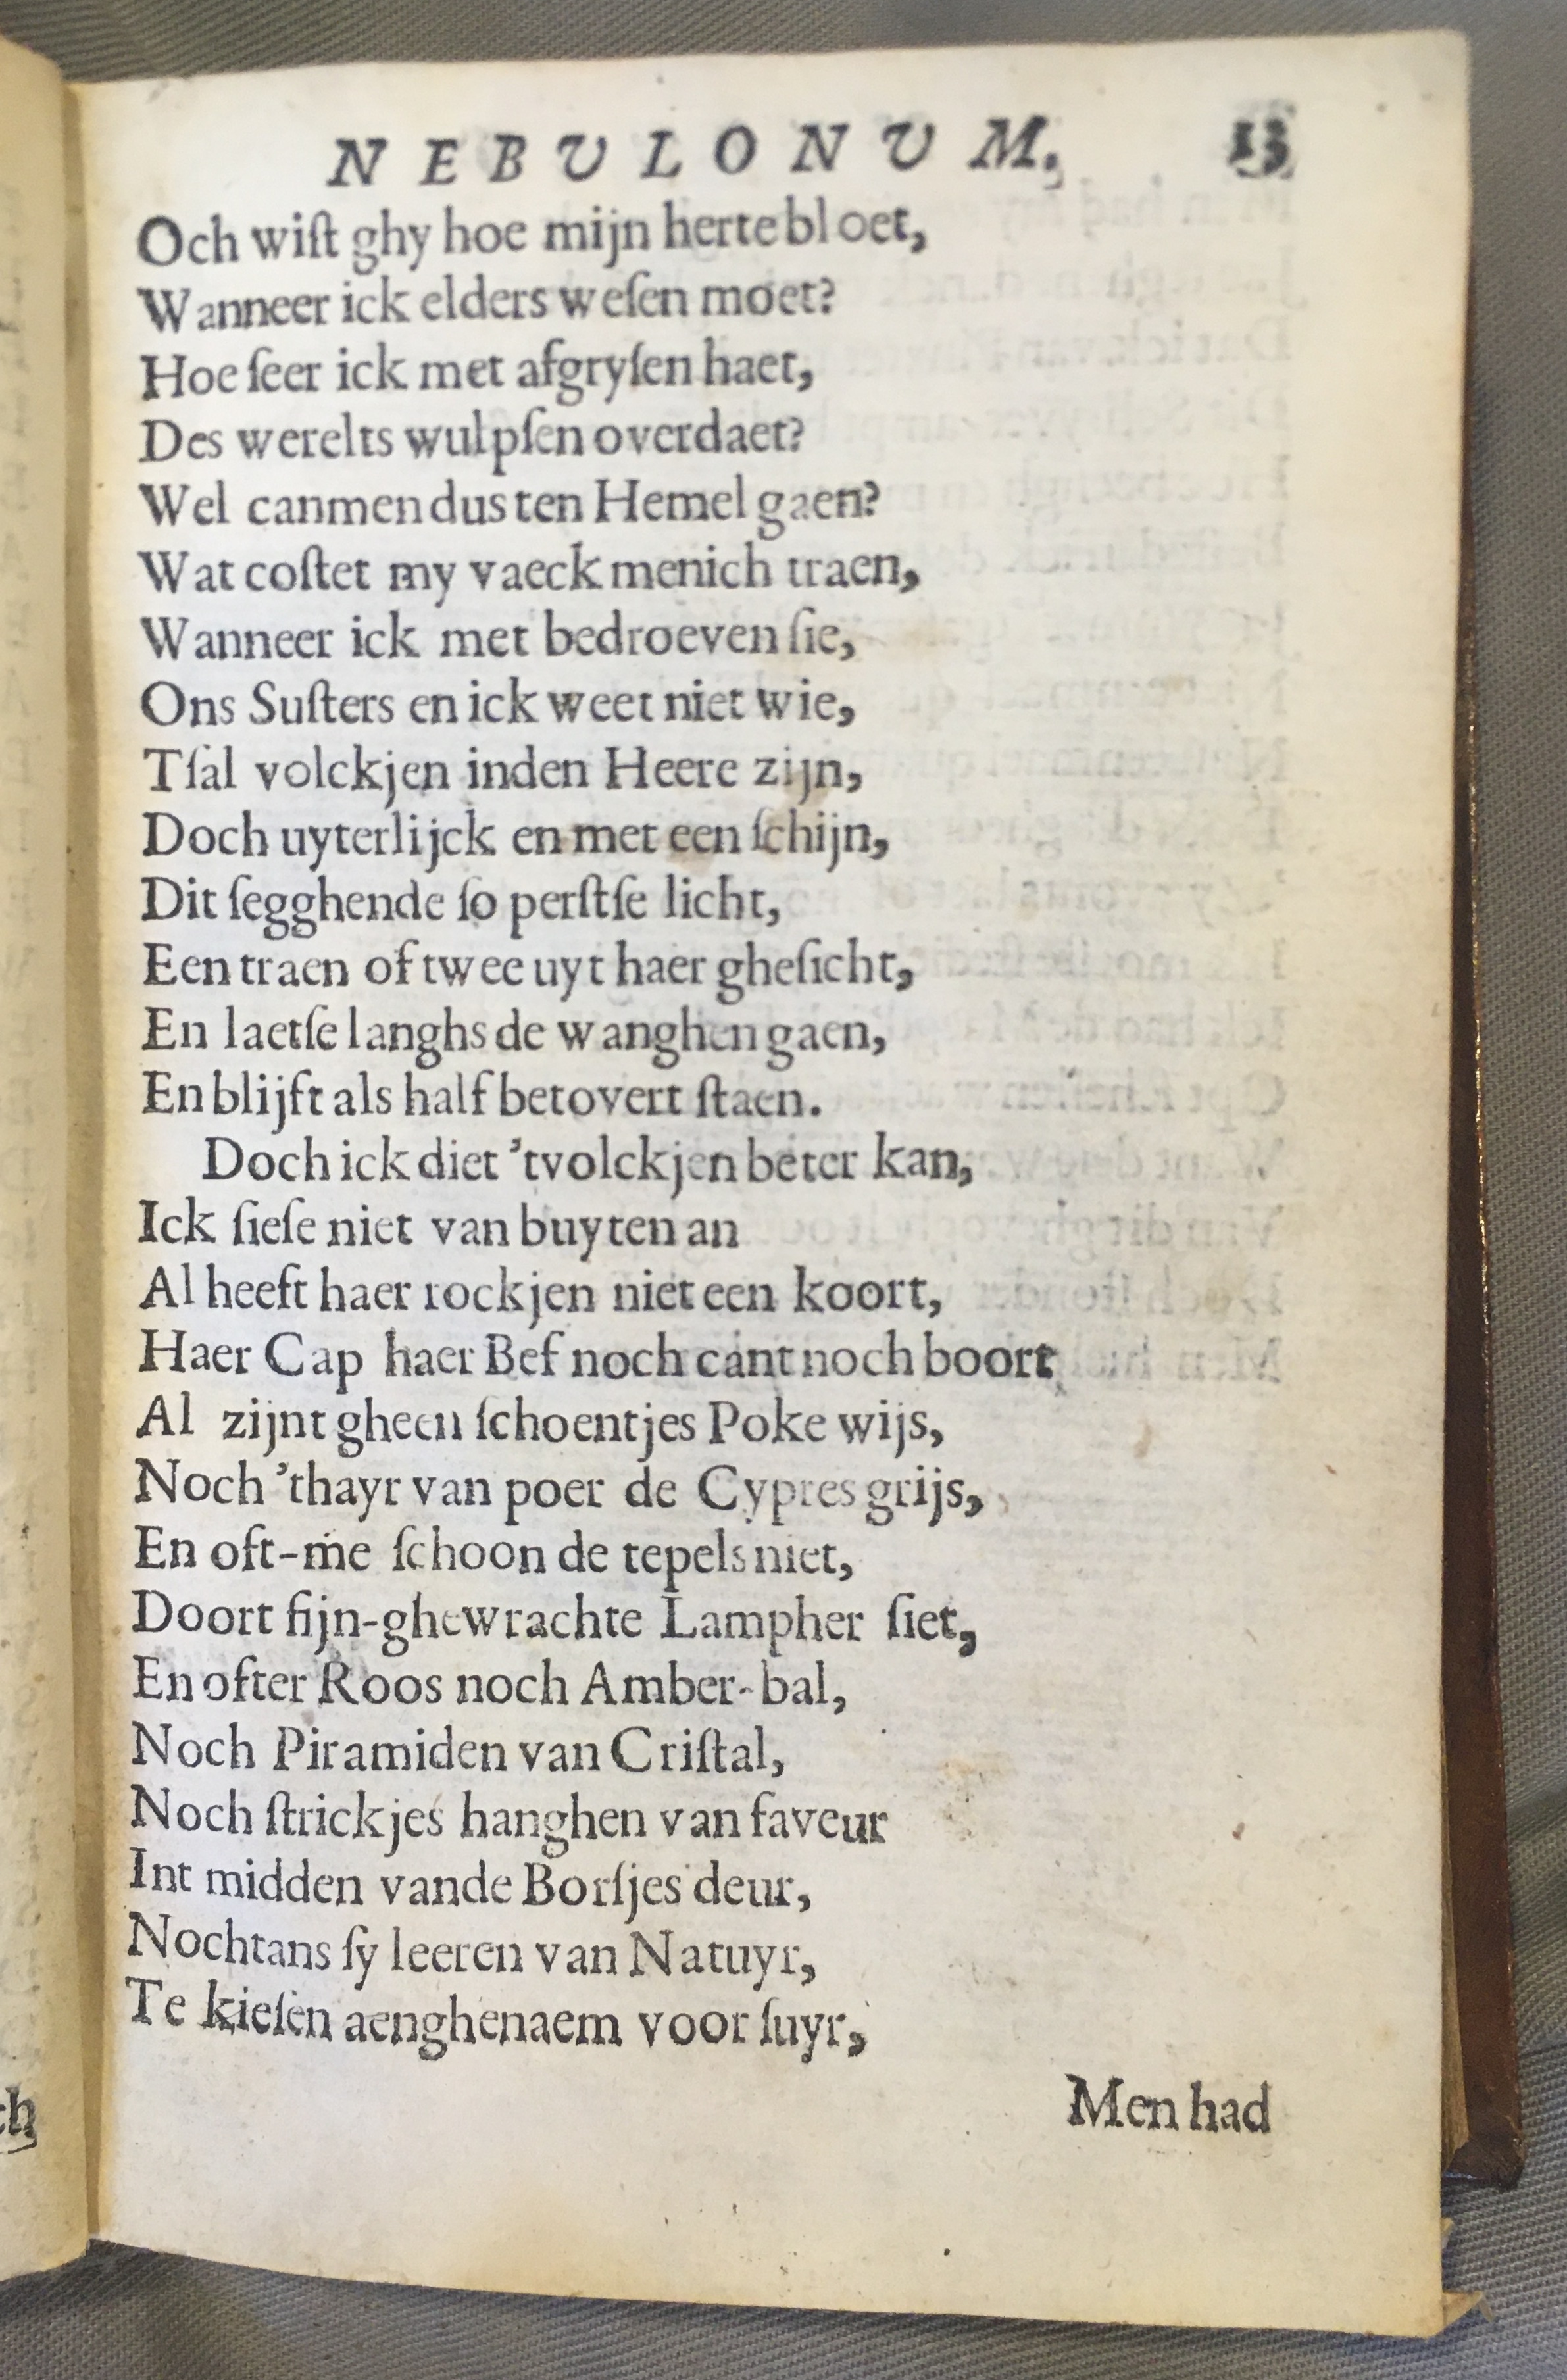 NEBULONUM. 13
Och wiſt ghy hoe mijn herte bloet,
Wanneer ick elders weſen moet?
Hoe ſeer ick met afgryſen haet,
Des werelts wulpſen overdaet?
Wel canmen dus ten Hemel gaen?
Wat coſtet my vaeck menich traen,
Wanneer ick met bedroeven ſie,
Ons Suſters en ick weet niet wie,
Tſal volckjen inden Heere zijn,
Doch uyterlijck en met een ſchijn,
Dit ſegghende ſo perſtſe licht,
Een traen of twee uyt haer gheſicht,
En laetſe langhs de wanghen gaen,
En blijft als half betovert ſtaen.
Doch ick diet 'tvolckjen beter kan,
Ick ſieſe niet van buyten an
Al heeft haer rockjen niet een koort,
Haer Cap haer Bef noch cant noch boort,
Al zijnt gheen ſchoentjes Poke wijs,
Noch 'thayr van poer de Cypres grijs,
En oft-me ſchoon de tepels niet,
Doort fijn-ghewrachte Lampher ſiet,
En ofter Roos noch Amber-bal,
Noch Piramiden van Criſtal,
Noch ſtrickjes hanghen van faveur
Int midden vande Borſjes deur,
Nochtans ſy leeren van Natuyr,
Te kieſen aenghenaem voor ſuyr,
Men had